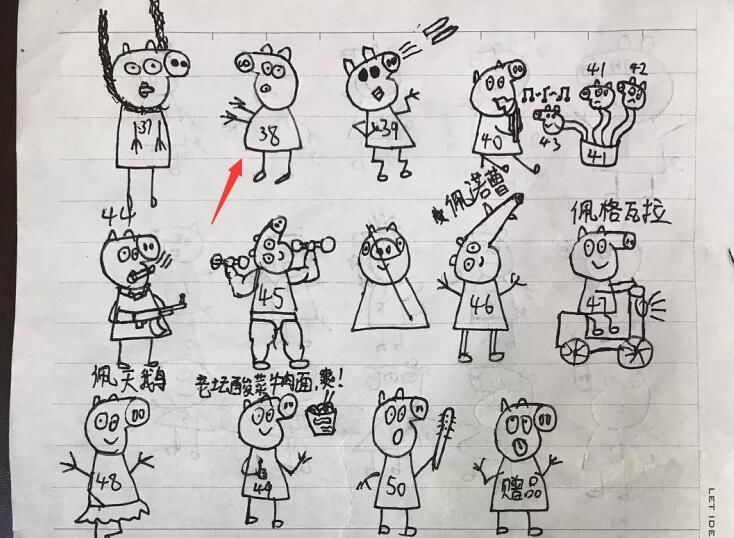 37
38
39
40
41
42
43
41
44
45
佩诺曹
46
佩格瓦拉
47
佩天鹅
48
老坛酸菜牛肉面,爽!
49
50
赠品
LET IDE